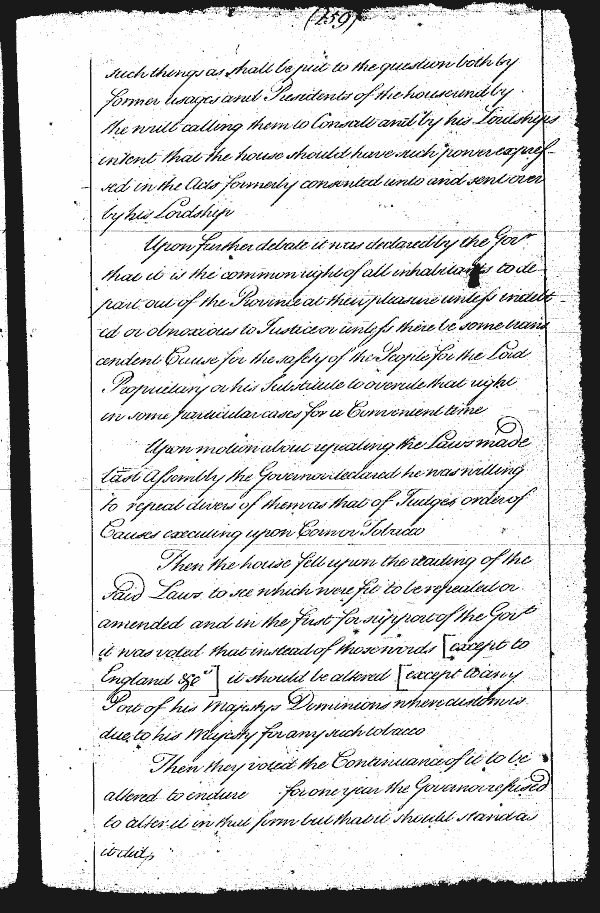 (159)
such things as shall be put to the question both by
former usages and Presidents of the house and by
the writt calling them to Consult and by his Lordships
intent that the house should have such power expres-
sed in the Acts formerly consented unto and sent over
by his Lordship
Upon further debate it was declared by the Govr
that it is the common right of all inhabitants to de-
part out of the Province at their pleasure unless indebt
ed or obnoxious to Justice or unless there be some trans
cendent Cause for the safety of the People for the Lord
Proprietary or his Substitute to overule that right
in some particular cases for a Convenient time
Upon motion about repealing the Laws made
last Assembly the Governor declared he was willing
to repeal divers of them as that of Judges order of
Causes executing upon Corn or Tobacco
Then the house fell upon the reading of the
said Laws to see which were fit to be repealed or
amended and in the first for support of the Govt
it was voted that instead of those words [except to
England &c] it should be altered [except to any
Port of his Majestys Dominions where custom is
due to his Majesty for any such tobacco
Then they voted the Continuance of it to be
altered to endure for one year the Governor refused
to alter it in that form but that it should stand as
it did,